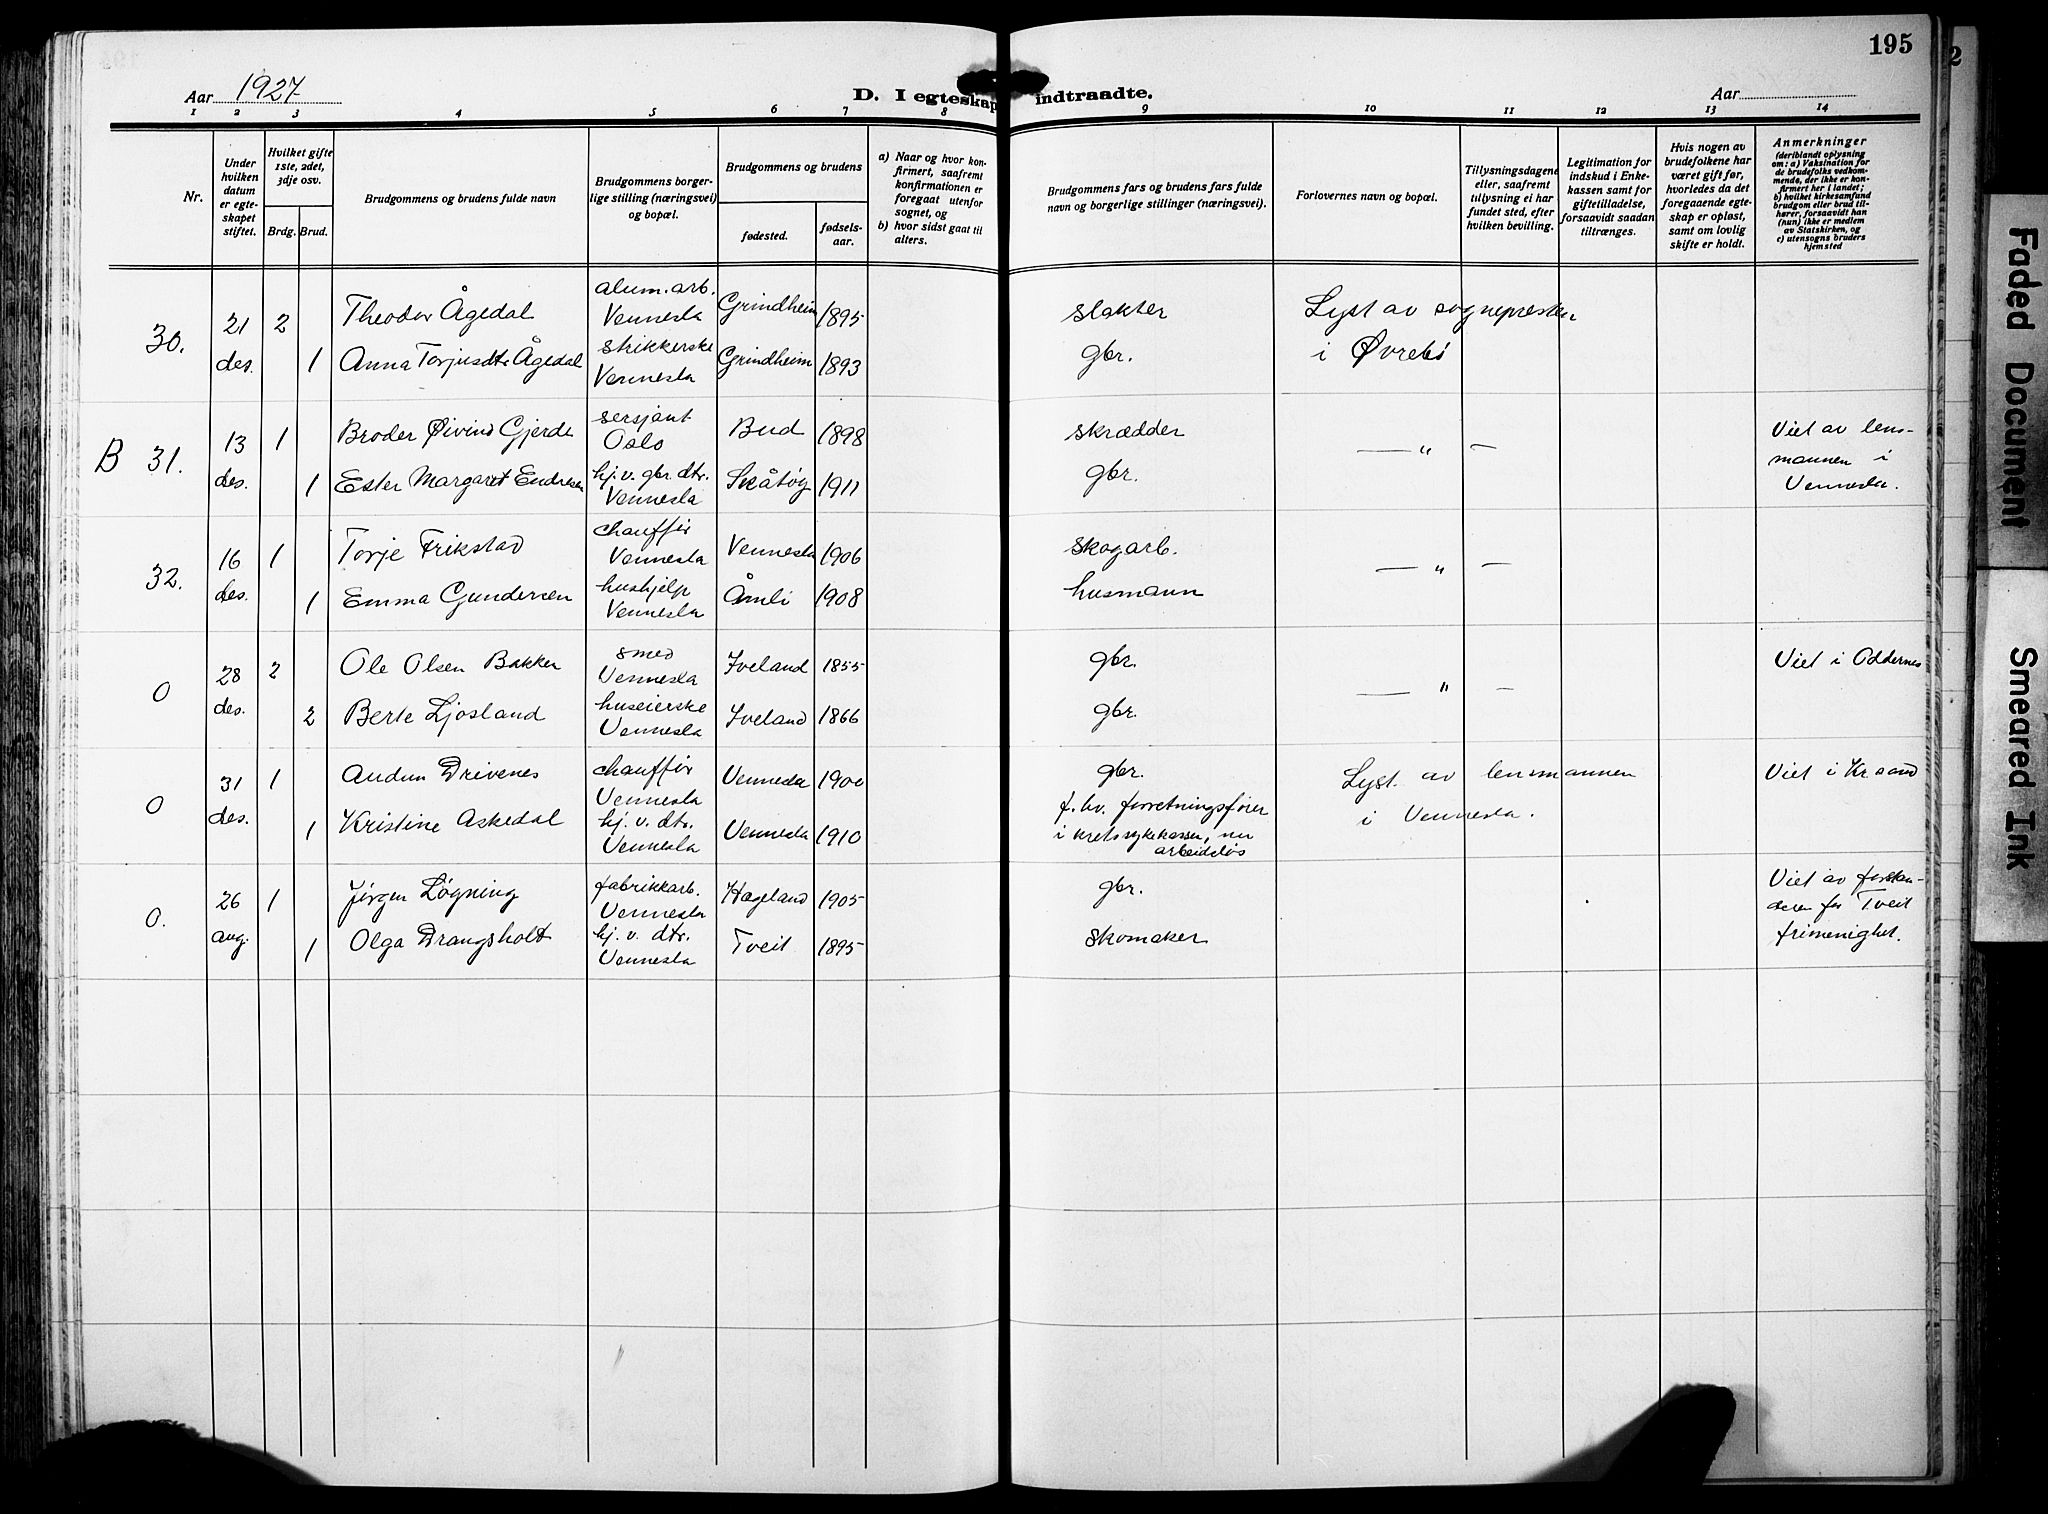 195
2
Aar 1927
D. I egteskap indtraadte.
Aar
1 2 3 4 5 6 7 8 9 10 11 12 13 14
Nr.
Under hvilken datum er egteskapet stiftet.
Hvilket gifte 1ste, 2det, 3dje osv.
Brdg. Brud.
Brudgommens og brudens fulde navn
Brudgommens borgerlige stilling (næringsvei) og bopæl.
Brudgommens og brudens
fødested.
fødselsaar.
a) Naar og hvor konfirmert, saafremt konfirmationen er foregaat utenfor sognet, og
b) hvor sidst gaat til alters.
Brudgommens fars og brudens fars fulde navn og borgerlige stillinger (næringsvei).
Forlovernes navn og bopæl.
Tillysningsdagene eller, saafremt tillysning ei har fundet sted, efter hvilken bevilling.
Legitimation for indskud i Enkekassen samt for giftetilladelse, forsaavidt saadan tiltrænges.
Hvis nogen av brudefolkene har været gift før, hvorledes da det foregaaende egteskap er opløst, samt om lovlig skifte er holdt.
Anmerkninger
(deriblandt oplysning om: a) Vaksination for de brudefolks vedkommende, der ikke er konfirmert her i landet; b) hvilket kirkesamfund brudgom eller brud tilhører, forsaavidt han (hun) ikke er medlem av Statskirken, og c) utensogns bruders hjemsted
30. 21 des. 2 Theodor Ågedal alum. arb. Vennesla Grindheim 1895 slakter Lyst av sognepresten
1 Anna Torjusdtr Ågedal strikkerske Vennesla Grindheim 1893 gbr. i Øvrebø
B 31. 13 des. 1 Broder Øivind Gjerde sersjant Oslo Bud 1898 skrædder — " — Viet av lensmannen i Vennesla.
1 Ester Margaret Endresen hj. v. gbr. dtr. Vennesla Skåtøy 1911 gbr.
32. 16 des. 1 Torje Frikstad chauffør Vennesla Vennesla 1906 skogarb. — " —
1 Emma Gundersen hushjelp Vennesla Åmli 1908 husmann
0 28 des. 2 Ole Olsen Bakken smed Vennesla Iveland 1855 gbr. — " — Viet i Oddernes
2 Berte Ljosland huseierske Vennesla Iveland 1866 gbr.
0 31 des. 1 Audun Drivenes chauffør Vennesla Vennesla 1900 gbr. Lyst. av lensmannen Viet i Krsand
1 Kristine Askedal hj. v. dtr. Vennesla Vennesla 1910 f. hv. forretningsfører i kretssykekassen, nu arbeidsløs i Vennesla.
0. 26 aug. 1 Jørgen Løgning fabrikkarb. Vennesla Hægeland 1905 gbr. Viet av forstanderen for Tveit frimenighet.
1 Olga Drangsholt hj. v. dtr. Vennesla Tveit 1895 skomaker
Faded Document
Smeared Ink